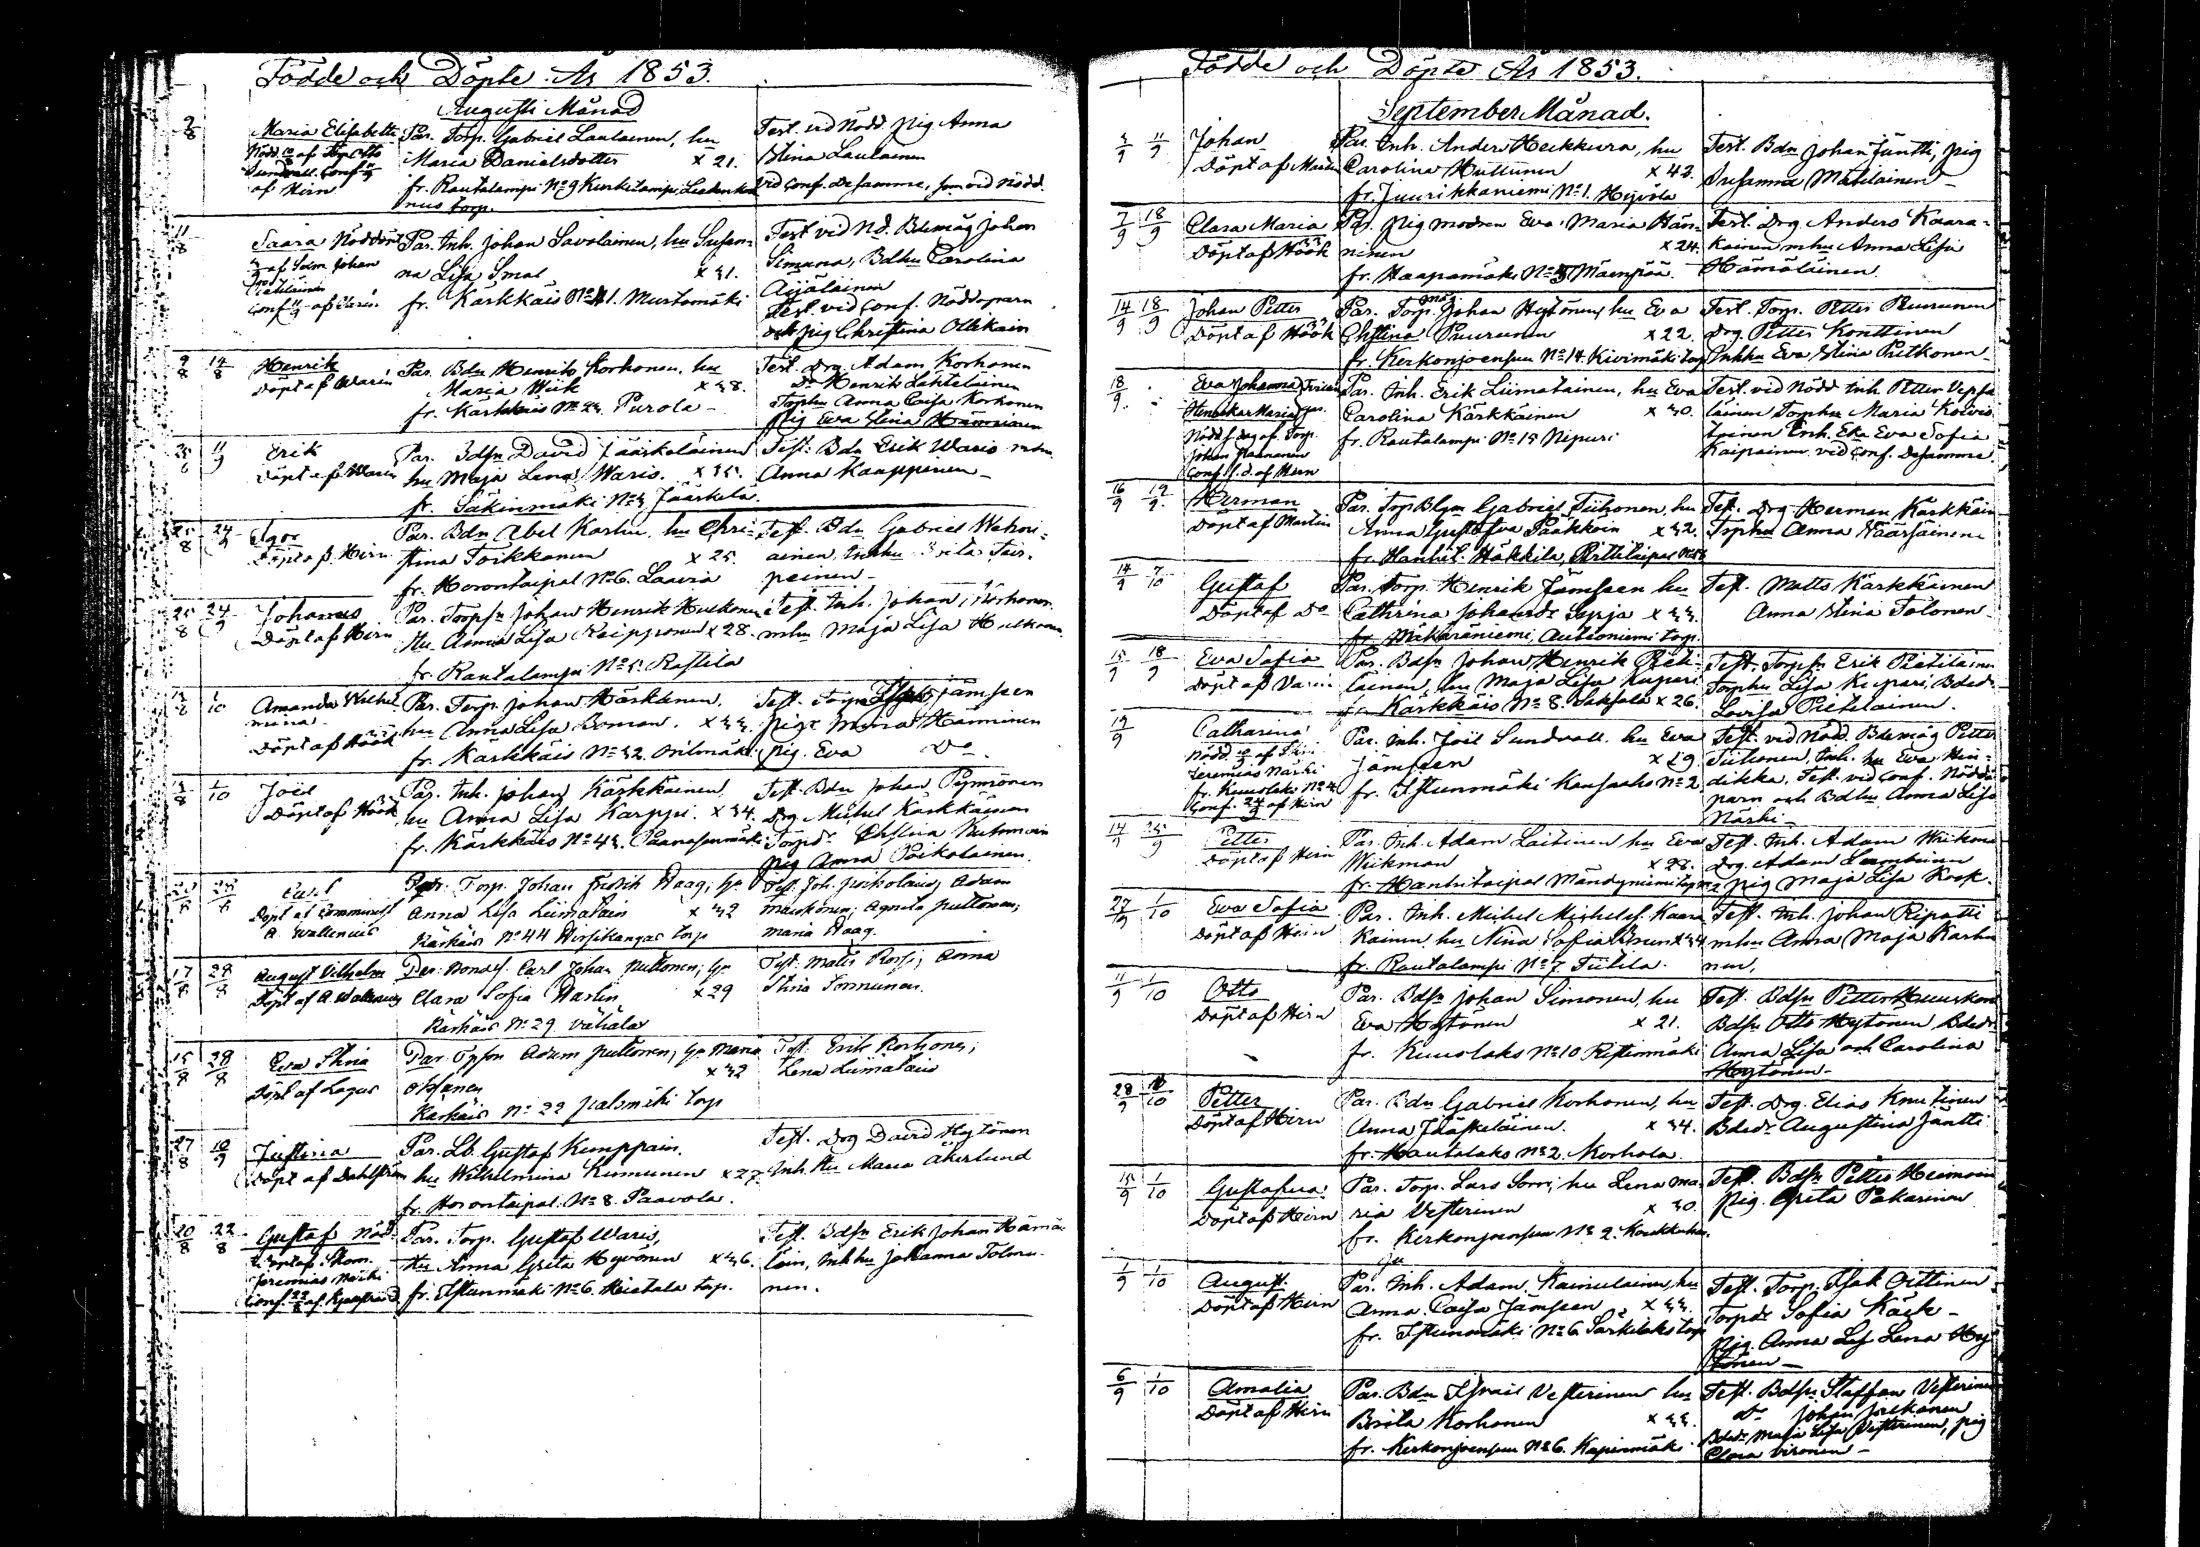 Födde och Döpte År 1853.
Augusti Månad
2/8 Maria Elisabeth Par. Torp. Gabriel Laulainen, hu Test. vid Nödd. Pig Anna
Nödd. af Torp Otto Maria Danielsdotter x 21. Stina Laulainen
Sundvall. Conf. fr. Rautalampi No 9 Kurkilampi, vid Conf. desamme, som vid Nödd.
af Hirn nus torp.
11/8 Saara Nöddöpt Par. Inh. Johan Savolainen, hu Susan- Test vid Nd. Bdemåg Johan
af Sdm Johan na Lisa Smal x 31. Simana, Bdhu Carolina
fr. Kärkkäis No 41. Mustamäki Äijäläinen
Conf. af Waren Test. vid Conf. Nöddoparn
och pig Christina Ollikain
9/8 14/8 Henrik Par. Bdn Henrik Korhonen, hu Test. Drg Adam Korhonen
Döpt af Waren Maria Wiik x 38. Do Henrik Lehtelainen
fr. Kärkkäis No 23. Purola - Torphu Anna Caisa Korhonen
Pig Eva Stina Hänninen
11/9 Erik Par. Bdsn David Jääskeläinen Test. Bdn Erik Waris mhu
Döpt af Waren hu Maja Lena Waris. Anna Kauppinen -
fr. Säkinmäki No 3 Jääskelä.
25/8 24/9 Par. Bdn Abel Karhu, hu Chri- Test. Bdn Gabriel
Döpt af Hirn stina Toikkanen x 25. ainen, Inhhu
fr. Horontaipal No 6. Laavia peinen -
25/8 24/9 Johannes Par. Torpsn Johan Henrik Huskonen Test. Inh. Johan Korhonen
Döpt af Hirn Hu Anna Lisa Kaipponen x 28. mhu Maja Lisa Huskonen
fr. Rautalampi No 5. Rastila
1/10 Amanda Wilhel- Par. Torp. Johan Häskänen, Test. Jämsen
mina hu Anna Lisa Boman. x 33. Pigr Maria Hänninen
Döpt af Höök fr. Kärkkäis No 32 Pig. Eva Do
1/10 Joel Par. Inh. Johan Kärkkäinen Test. Bdn Johan Pynnönen
Döpt af Höök hu Anna Lisa Karppi. x 34. Drg Mickel Kärkkäinen
fr. Kärkkäis No 43. Paanasenmäki Torpdr Christina
Pig Anna Poikolainen.
28/8 Carl Par. Torp. Johan Fredrik Haag, hu Test. Joh. Poikolain, Adam
Döpt af Comminist Anna Lisa Liimatain x 32 Agneta Puttonen,
A. Wallenius Kärkäis No 44 Hirsikangas torp Maria Haag.
17/8 28/8 August Vilhelm Par. Bonds. Carl Johan Puttonen, hu Test. Matts Rossi, Anna
Döpt af A. Wallenius Clara Sofia Warlin x 29 Stina Sormunen.
Kärkäis No 29 Vähälax
15/8 28/8 Eva Stina Par. Tpson Adam Puttonen, hu Maria Test. Erik Korhonen,
Döpt af Lagus x 32 Lena Liimatain
Kärkäis No 22 Jralamäki torp
27/8 10/9 Justina Par. Lb. Gustaf Kemppain. Test. Drg David Hytönen
Döpt af Dahlström hu Wilhelmina Kinnunen x 27. Inh. Hu Maria Åkerlund
fr. Horontaipal. No 8. Paavola.
20/8 22/8 Gustaf Nöd- Par. Torp. Gustaf Waris, Test. Bdsn Erik Johan Hämä-
döpt af Skom. Hu Anna Greta Hyvönen x 36. läin, Inhhu Johanna Tolvan-
Jeremias Närhi fr. Istunmäki No 6. Hietala torp. nen.
Conf.
Födde och Döpte År 1853.
September Månad.
11/9 Johan Par. Inh. Anders Heikkura, hu Test. Bdn Johan Jäntti, Pig
Döpt af Martin Carolina Huttunen x 42. Susanna Matilainen -
fr. Juurikkaniemi No 1. Hyvölä
7/9 18/9 Clara Maria Par. Pig modren Eva Maria Hän- Test. Drg Anders Kaara-
Döpt af Höök ninen x 24. kainen mhu Anna Lisa
fr. Haapamäki No 5 Mäenpää. Hämäläinen.
14/9 18/9 Johan Petter Par. Torpmåg Johan Hytönen, hu Eva Test. Torp. Petter Puurunen
Döpt af Höök Christina Puurunen x 22. Drg Petter Konttinen
fr. Kerkonjoensuu No 14. Kivimäki torp Inhhu Eva Stina Pitkonen -
18/9 Eva Johanna Par. Inh. Erik Liimatainen, hu Eva Test. vid Nödd Inh. Petter Vepsä-
Maria Carolina Kärkkäinen x 30. läinen Torphu Maria Koivis-
Nödd s. dag af Torp. fr. Rautalampi No 15 Nipuri toinen Inh. Eka Eva Sofia
Johan Hannonen Kaipainen vid Conf. desamme.
Conf. s. d. af Hirn
16/9 19/9 Herman Par. Torp Blgn Gabriel Tiihonen, hu Test. Drg Herman Kärkkäin
Döpt af Martin Anna Gustafva Pääkköin x 32. Torphu Anna Väärjäinen
fr. Hankit. Häkkilä,
14/9 7/10 Gustaf Par. Torp. Henrik Jämsen hu Test. Matts Kärkkäinen
Döpt af Do Cathrina Johansdr Syrjä x 33. Anna Stina Tolonen -
fr. Mäkäräniemi, Autioniemi torp.
15/9 18/9 Eva Sofia Par. Bdsn Johan Henrik Pieti- Test. Torpsn Erik Pietiläinen
Döpt af Waren läinen, hu Maja Lisa Kupari Torphu Lisa Kupari, Bdedr
fr. Kärkkäis No 8. Saksala x 26. Lovisa Pietiläinen.
19/9 Catharina Par. Inh. Joel Sundvall. hu Eva Test. vid Nödd. Bdemåg Petter
Nödd. af Jämsen x 29 Tiihonen, Inh. hu Eva Hin-
Jeremias Närhi fr. Istunmäki Kansala No 2 dikka. Test. vid Conf. Nöddo-
fr. Kuuslaks No 2 parn och Bdhu Anna Lisa
Conf. 24/9 af Hirn Närhi -
14/9 25/9 Petter Par. Inh. Adam Laitinen hu Eva Test. Inh. Adam
Döpt af Hirn Wickman x 28. Drg. Adam Lambinen
fr. Hankitaipal Mändyniemi torp Pig Maja Lisa Kock.
27/9 1/10 Eva Sofia Par. Inh. Michel Michelss. Kaara- Test. Inh. Johan Ripatti
Döpt af Hirn kainen, hu Nina Sofia Brun x 34 mhu Anna Maja Karhu-
fr. Rautalampi No 7. Tiitilä. nen.
11/9 1/10 Otto Par. Bdsn Johan Simonen, hu Test. Bdsn Petter
Döpt af Hirn Eva Hytönen x 21. Bdsn Otto Hytönen Bdedr
fr. Kuuslaks No 10 Ristinmäki Anna Lisa och Carolina
Hytönen -
28/9 Petter Par. Bdn Gabriel Korhonen, hu Test. Drg. Elias Knutinen
Döpt af Hirn Anna Jääskeläinen. x 34. Bdedr Augustina Jäntti
fr. Hautalaks No 2. Korhola.
15/9 1/10 Gustafva Par. Torp. Lars Sorri, hu Lena Ma- Test. Bdsn Petter Heimoin
Döpt af Hirn ria Vesterinen x 30. Pig. Greta Pakarinen
fr. Kerkonjoensuu No 2.
1/9 1/10 August Par. Inh. Adam Kainulainen, hu Test. Torp. Isak Oittinen
Döpt af Hirn Anna Caisa Jämsen x 33. Torpdr Sofia Käck -
fr. Istunmäki No 6 Särkilaks torp Pig. Anna Lis Lena Hy-
tönen -
6/9 1/10 Amalia Par. Bdn Israel Vesterinen hu Test. Bdsn Staffan Vesterinen
Döpt af Hirn Brita Korhonen x 33. Do Johan
fr. Kerkonjoensuu No 6. Kapinmäki Bdedr Maja Lisa Vesterinen, Pig
Clara Vironen -